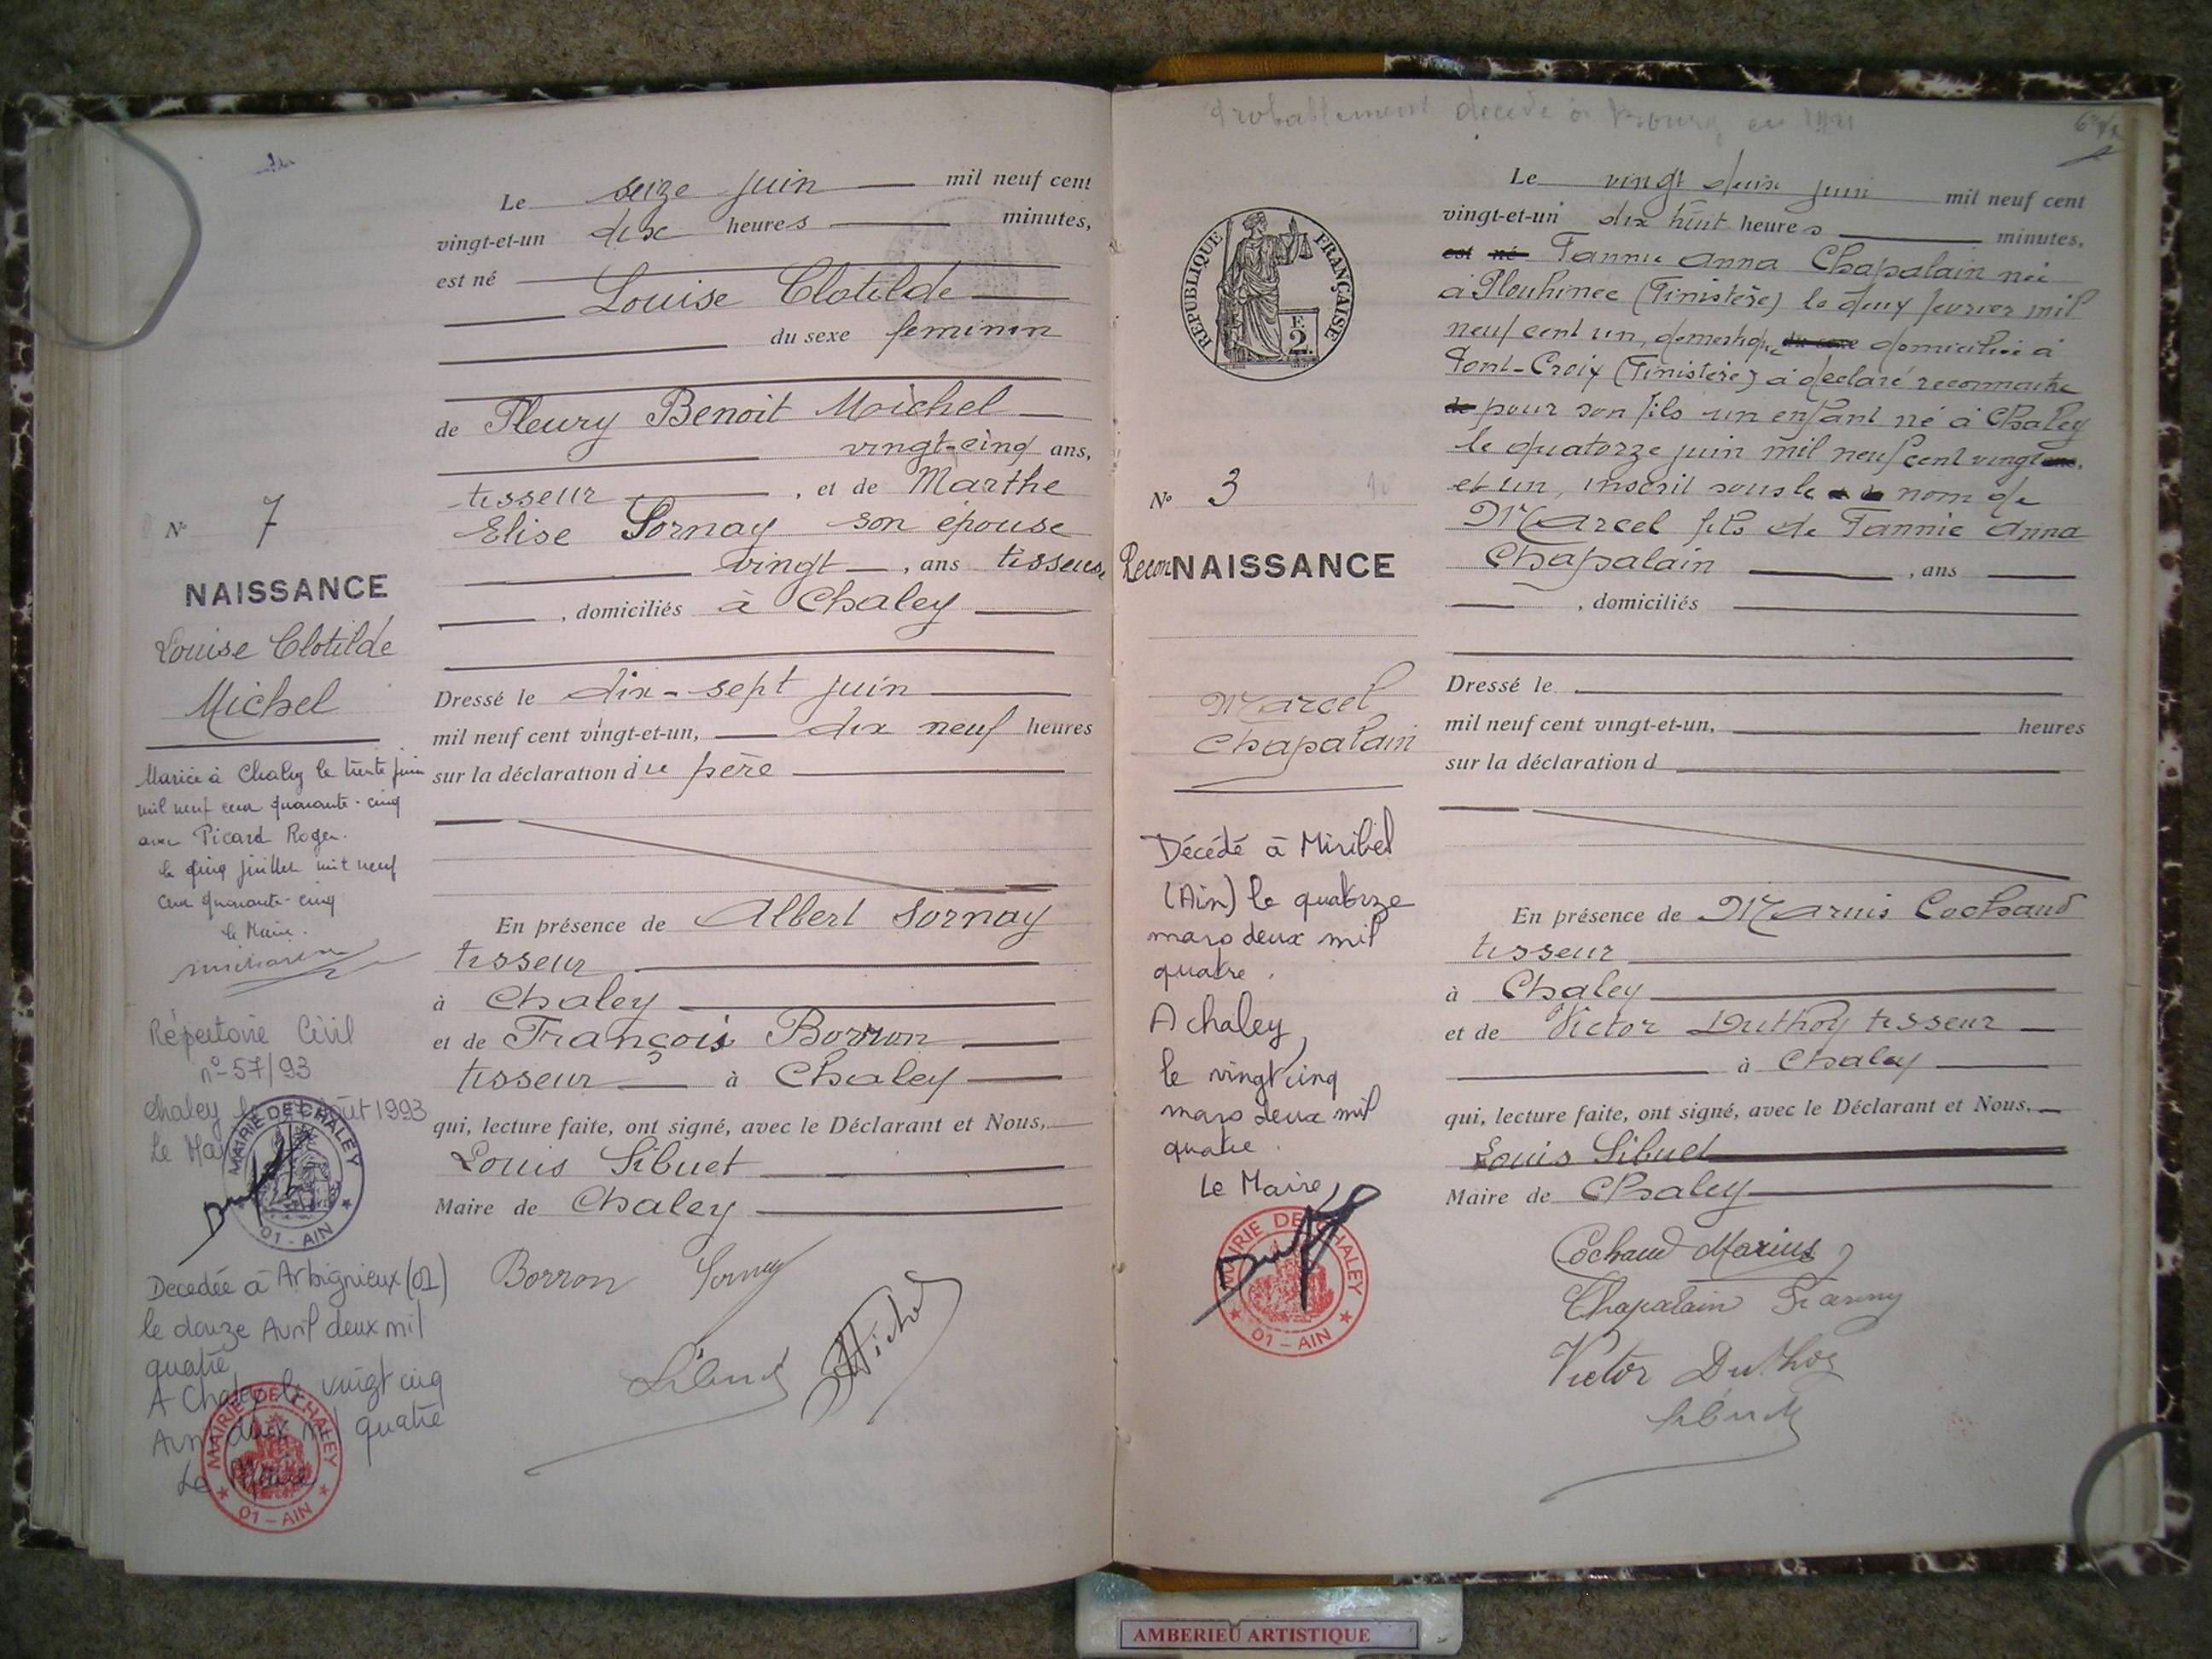 Le seize juin mil neuf cent
vingt-et-un dix heures minutes,
est né
Louise Clotilde
du sexe feminin
de Fleury Benoit Michel
vingt-cinq ans,
tisseur, et de Marthe
Elise Sornay son épouse
vingt, ans tisseuse
, domiciliés à Chaley
Dressé le dix-sept juin
mil neuf cent vingt-et-un, dix neuf heures
sur la déclaration du père
En présence de Albert Sornay
tisseur
à Chaley
et de François Borron
tisseur à Chaley
qui, lecture faite, ont signé, avec le Déclarant et Nous,
Louis Sibuet
Maire de Chaley
Borron Sornay
Sibuet Michel
N° 7
NAISSANCE
Louise Clotilde
Michel
Mariée à Chaley le trente juin
mil neuf cent quarante-cinq
avec Picard Roger.
le cinq juillet mil neuf
cent quarante-cinq
le Maire.
Répertoire Civil
n° 57/93
Chaley le août 1993
Le Maire
MAIRIE DE CHALEY
01 - AIN
Decedée à Arbignieux (01)
le douze Avril deux mil
quatre
A Chaley le vingt cinq
Avril deux mil quatre
Le Maire
MAIRIE DE CHALEY
01 - AIN
Probablement decede à Bourg en
Le vingt deux juin mil neuf cent
vingt-et-un dix huit heures minutes,
est né Fannie Anna Chapalain née
à Plouhinec (Finistère) le deux fevrier mil
neuf cent un, domestique du sexe domiciliée à
Pont-Croix (Finistère) a déclaré reconnaitre
de pour son fils un enfant né à Chaley
le quatorze juin mil neuf cent vingt ans,
et un, inscrit sous le nom de
Marcel fils de Fannie Anna
Chapalain, ans
, domiciliés
Dressé le
mil neuf cent vingt-et-un, heures
sur la déclaration d
En présence de Marius Cochaud
tisseur
à Chaley
et de Victor Duthoy tisseur
à Chaley
qui, lecture faite, ont signé, avec le Déclarant et Nous,
Louis Sibuet
Maire de Chaley
Cochaud Marius
Chapalain Fanny
Victor Duthoy
Sibuet
RÉPUBLIQUE FRANÇAISE
E
2
N° 3
ReconNAISSANCE
Marcel
Chapalain
Décédé à Miribel
(Ain) le quatorze
mars deux mil
quatre.
A chaley,
le vingt cinq
mars deux mil
quatre.
Le Maire,
MAIRIE DE CHALEY
01 - AIN
AMBERIEU ARTISTIQUE